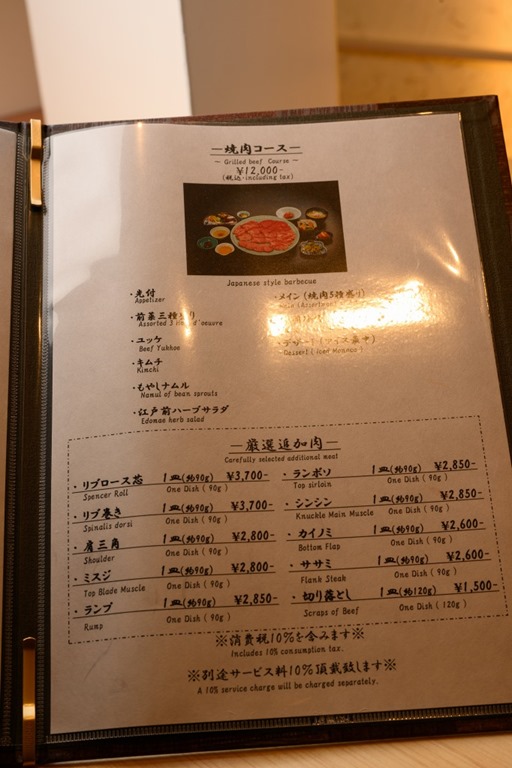 —焼肉コース—
~ Grilled beef Course ~
¥12,000-
(税込・including tax)
Japanese style barbecue
・先付
Appetizer
・前菜三種盛り
Assorted 3 d'oeuvre
・ユッケ
Beef Yukhoe
・キムチ
Kimchi
・もやしナムル
Namul of bean sprouts
・江戸前ハーブサラダ
Edomae herb salad
・メイン(焼肉5種盛り)
・デザート(アイス最中)
Dessert (Iced Monaka)
—厳選追加肉—
Carefully selected additional meat
・リブロース芯 1皿(約90g) ¥3,700-
Spencer Roll One Dish ( 90g )
・リブ巻き 1皿(約90g) ¥3,700-
Spinalis dorsi One Dish ( 90g )
・肩三角 1皿(約90g) ¥2,800-
Shoulder One Dish ( 90g )
・ミスジ 1皿(約90g) ¥2,800-
Top Blade Muscle One Dish ( 90g )
・ランプ 1皿(約90g) ¥2,850-
Rump One Dish ( 90g )
・ランボソ 1皿(約90g) ¥2,850-
Top sirloin One Dish ( 90g )
・シンシン 1皿(約90g) ¥2,850-
Knuckle Main Muscle One Dish ( 90g )
・カイノミ 1皿(約90g) ¥2,600-
Bottom Flap One Dish ( 90g )
・ササミ 1皿(約90g) ¥2,600-
Flank Steak One Dish ( 90g )
・切り落とし 1皿(約120g) ¥1,500-
Scraps of Beef One Dish ( 120g )
※消費税10%を含みます※
Includes 10% consumption tax.
※別途サービス料10%頂戴致します※
A 10% service charge will be charged separately.